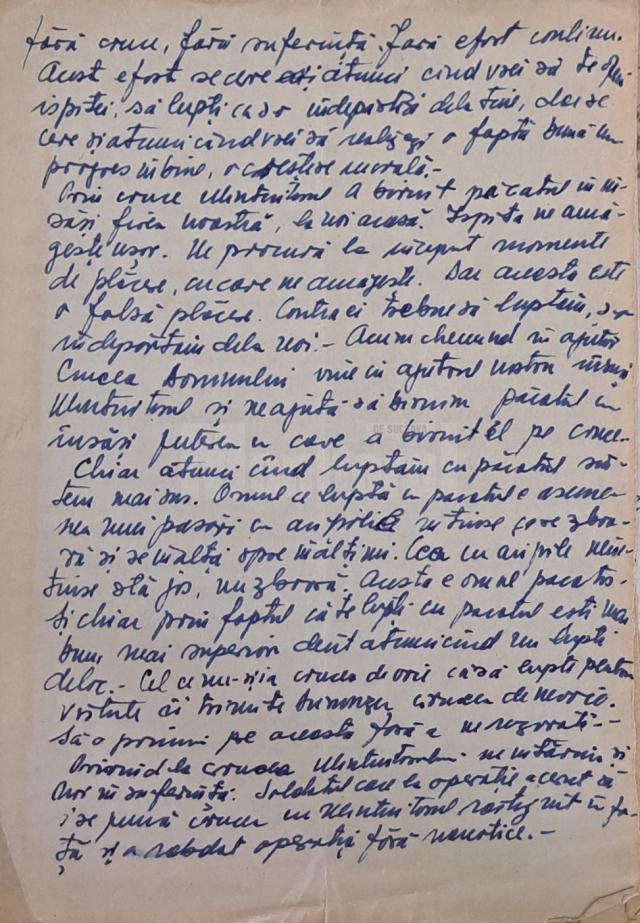 fără cruce, fără suferință, fără efort continu.
Acest efort se cere și atunci cînd vrei să te opui
ispitei, să lupți ca s-o îndepărtezi dela tine, dar se
cere și atunci cînd vrei să realizezi o faptă bună un
progres în bine, o creștere morală.-
Prin cruce Mîntuitorul a biruit păcatul în în-
săși firea noastră, la noi acasă. Ispita ne amă-
gește ușor. Ne procură la început momente
de plăcere, cu care ne amăgește. Dar aceasta este
o falsă plăcere. Contra ei trebue să luptăm, s-o
îndepărtăm dela noi.- Acum chemînd în ajutor
Crucea Domnului vine în ajutorul nostru însuși
Mîntuitorul și ne ajută să biruim păcatul cu
însăși puterea cu care a biruit El pe cruce.
Chiar atunci cînd luptăm cu păcatul sîn-
tem mai sus. Omul ce luptă cu păcatul e aseme-
nea unei pasări cu aripile întinse ce zboa-
ră și se înalță spre înălțimi. Cea cu aripile neîn-
tinse stă jos, nu zboară. Acesta e omul păcătos.
Și chiar prin faptul că te lupți cu păcatul ești mai
bun, mai superior decît atunci cînd nu lupți
deloc.- Cel ce nu-și ia crucea de voie ca să lupte pentru
virtute îi trimite Dumnezeu crucea de nevoie.
Să o primim pe aceasta fără a ne răzvrăti.-
Privind la crucea Mîntuitorului ne întărim și
noi în suferință. Soldatul care la operație a cerut să
i se pună crucea cu Mîntuitorul răstignit în fa-
ță și a răbdat operația fără narcotice.-
DE SUCEAVA